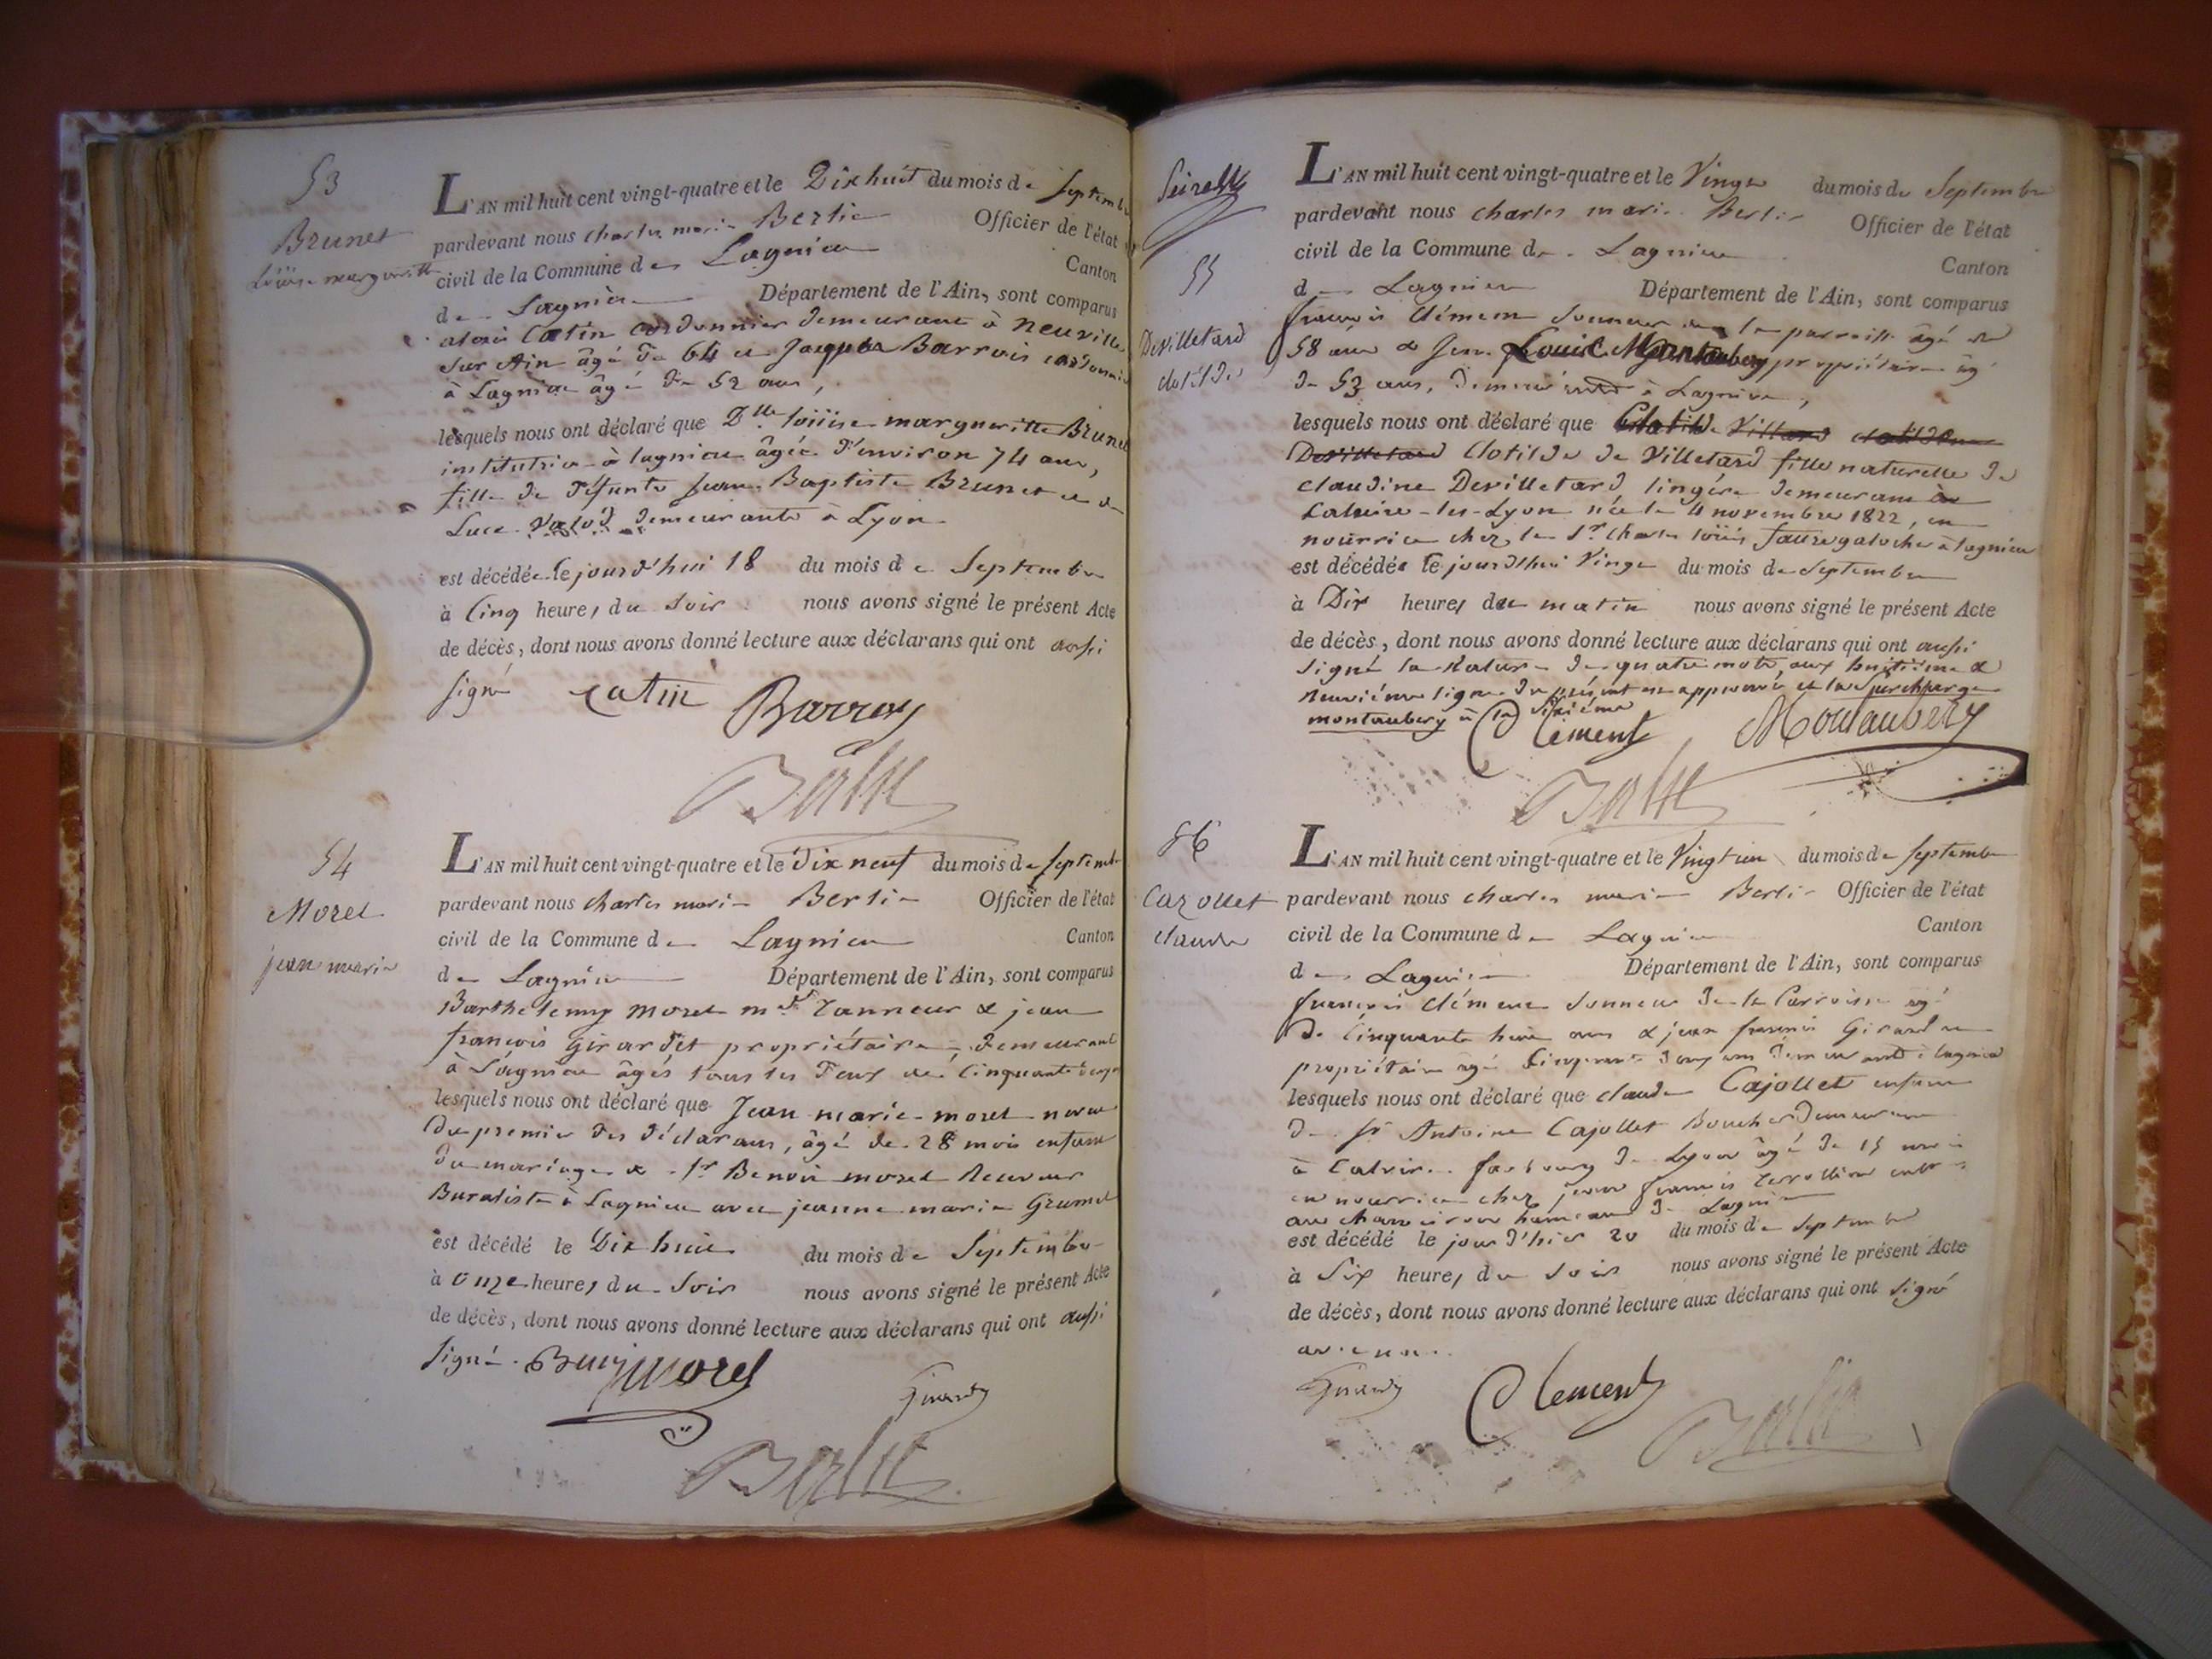 53
Brunet
Loüise margueritte
L'AN mil huit cent vingt-quatre et le Dix huit du mois de Septembre
pardevant nous charles marie Berlie Officier de l'état
civil de la Commune de Lagnieu Canton
de Lagnieu Département de l'Ain, sont comparus
alexis Catin cordonnier demeurant à Neuville
sur Ain âgé de 64 et Jacques Barrois cordonnier
à Lagnieu âgé de 52 ans,
lesquels nous ont déclaré que Dlle loüise margueritte Brunet
institutrice à lagnieu âgée d'environ 74 ans,
fille de défunts Jean Baptiste Brunet et de
Luce demeurants à Lyon
est décédée le jourd'hui 18 du mois de Septembre
à Cinq heures du soir nous avons signé le présent Acte
de décès, dont nous avons donné lecture aux déclarans qui ont aussi
signé Catin Barroy
Berlie
54
Morel
jean marie
L'AN mil huit cent vingt-quatre et le dix neuf du mois de Septembre
pardevant nous charles marie Berlie Officier de l'état
civil de la Commune de Lagnieu Canton
de Lagnieu Département de l'Ain, sont comparus
Barthelemy morel md Tanneur & jean
françois Girardet propriétaire, demeurant
à Lagnieu âgés tous les deux de Cinquante deux
lesquels nous ont déclaré que Jean marie morel neveu
du premier des déclarans, âgé de 28 mois enfant
du mariage de Sr Benoit morel Receveur
Buraliste à Lagnieu avec jeanne marie Grumel
est décédé le Dix huit du mois de Septembre
à onze heures du soir nous avons signé le présent Acte
de décès, dont nous avons donné lecture aux déclarans qui ont aussi
signé. Morel Girardet
Berlie
55
Devilletard
clotilde
L'AN mil huit cent vingt-quatre et le Vingt du mois de Septembre
pardevant nous charles marie Berlie Officier de l'état
civil de la Commune de Lagnieu Canton
de Lagnieu Département de l'Ain, sont comparus
françois Clément Sonneur de la parroisse âgé de
58 ans & Louis Montaubery propriétaire âgé
de 53 ans, demeurants à Lagnieu,
lesquels nous ont déclaré que Clotilde Villard clotilde
Devilletard Clotilde de Villetard fille naturelle de
claudine Devilletard lingère demeurant à
Caluire-les-Lyon née le 4 novembre 1822, en
nourrice chez le Sr Charles loüis à lagnieu
est décédée le jourdhui Vingt du mois de Septembre
à Dix heures du matin nous avons signé le présent Acte
de décès, dont nous avons donné lecture aux déclarans qui ont aussi
signé la rature de quatre mots aux huitième &
neuvième ligne du présent est approuvée et la Surcharge
montaubery à la sixième
Clement Montaubery
Berlie
56
Cazollet
claude
L'AN mil huit cent vingt-quatre et le Vingt un du mois de Septembre
pardevant nous charles marie Berlie Officier de l'état
civil de la Commune de Lagnieu Canton
de Lagnieu Département de l'Ain, sont comparus
françois Clément Sonneur de la Parroisse âgé
de Cinquante huit ans & jean françois Girardet
propriétaire âgé Cinquante deux ans demeurants à lagnieu
lesquels nous ont déclaré que claude Cajollet enfant
de Sr Antoine Cajollet Boucher demeurant
à Caluire faubourg de Lyon âgé de 15 mois
en nourrice chez jean françois
hameau de Lagnieu
est décédé le jour d'hier 20 du mois de Septembre
à Six heures du soir nous avons signé le présent Acte
de décès, dont nous avons donné lecture aux déclarans qui ont signé
avec nous.
Girardet Clement Berlie